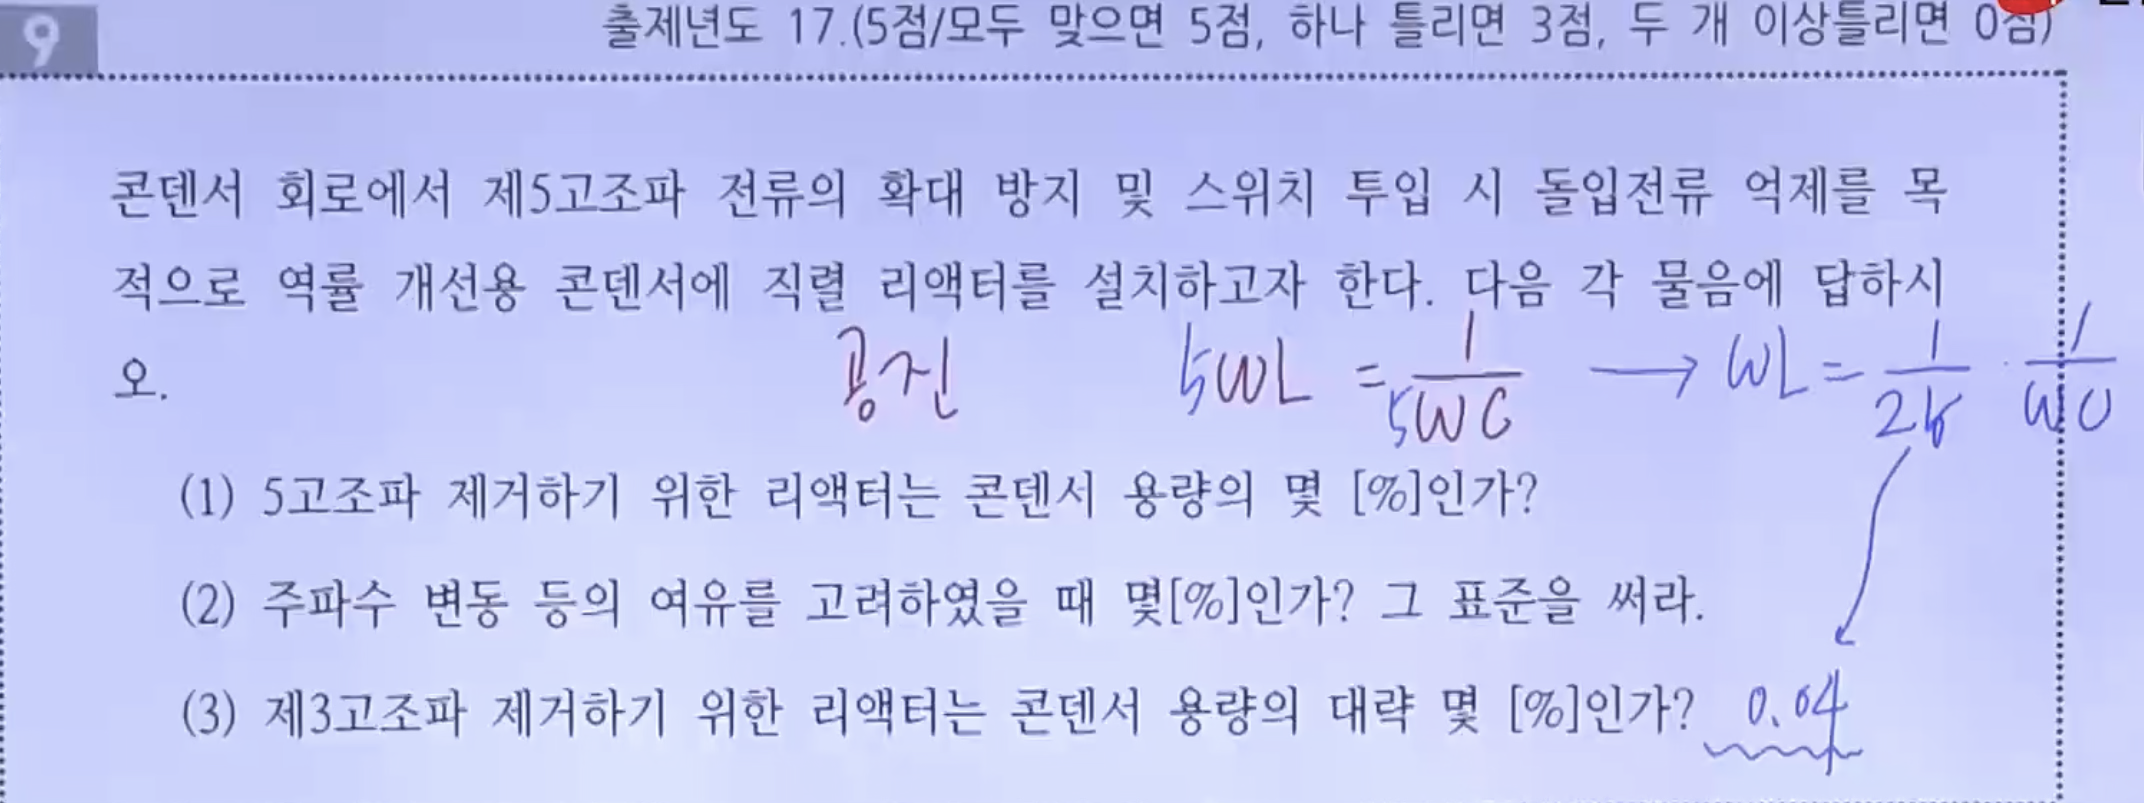 9
출제년도 17.(5점/모두 맞으면 5점, 하나 틀리면 3점, 두 개 이상틀리면 0점)
콘덴서 회로에서 제5고조파 전류의 확대 방지 및 스위치 투입 시 돌입전류 억제를 목
적으로 역률 개선용 콘덴서에 직렬 리액터를 설치하고자 한다. 다음 각 물음에 답하시
오.
공진 5WL = 1/5WC → WL = 1/25 · 1/WC
(1) 5고조파 제거하기 위한 리액터는 콘덴서 용량의 몇 [%]인가?
(2) 주파수 변동 등의 여유를 고려하였을 때 몇[%]인가? 그 표준을 써라.
(3) 제3고조파 제거하기 위한 리액터는 콘덴서 용량의 대략 몇 [%]인가? 0.04